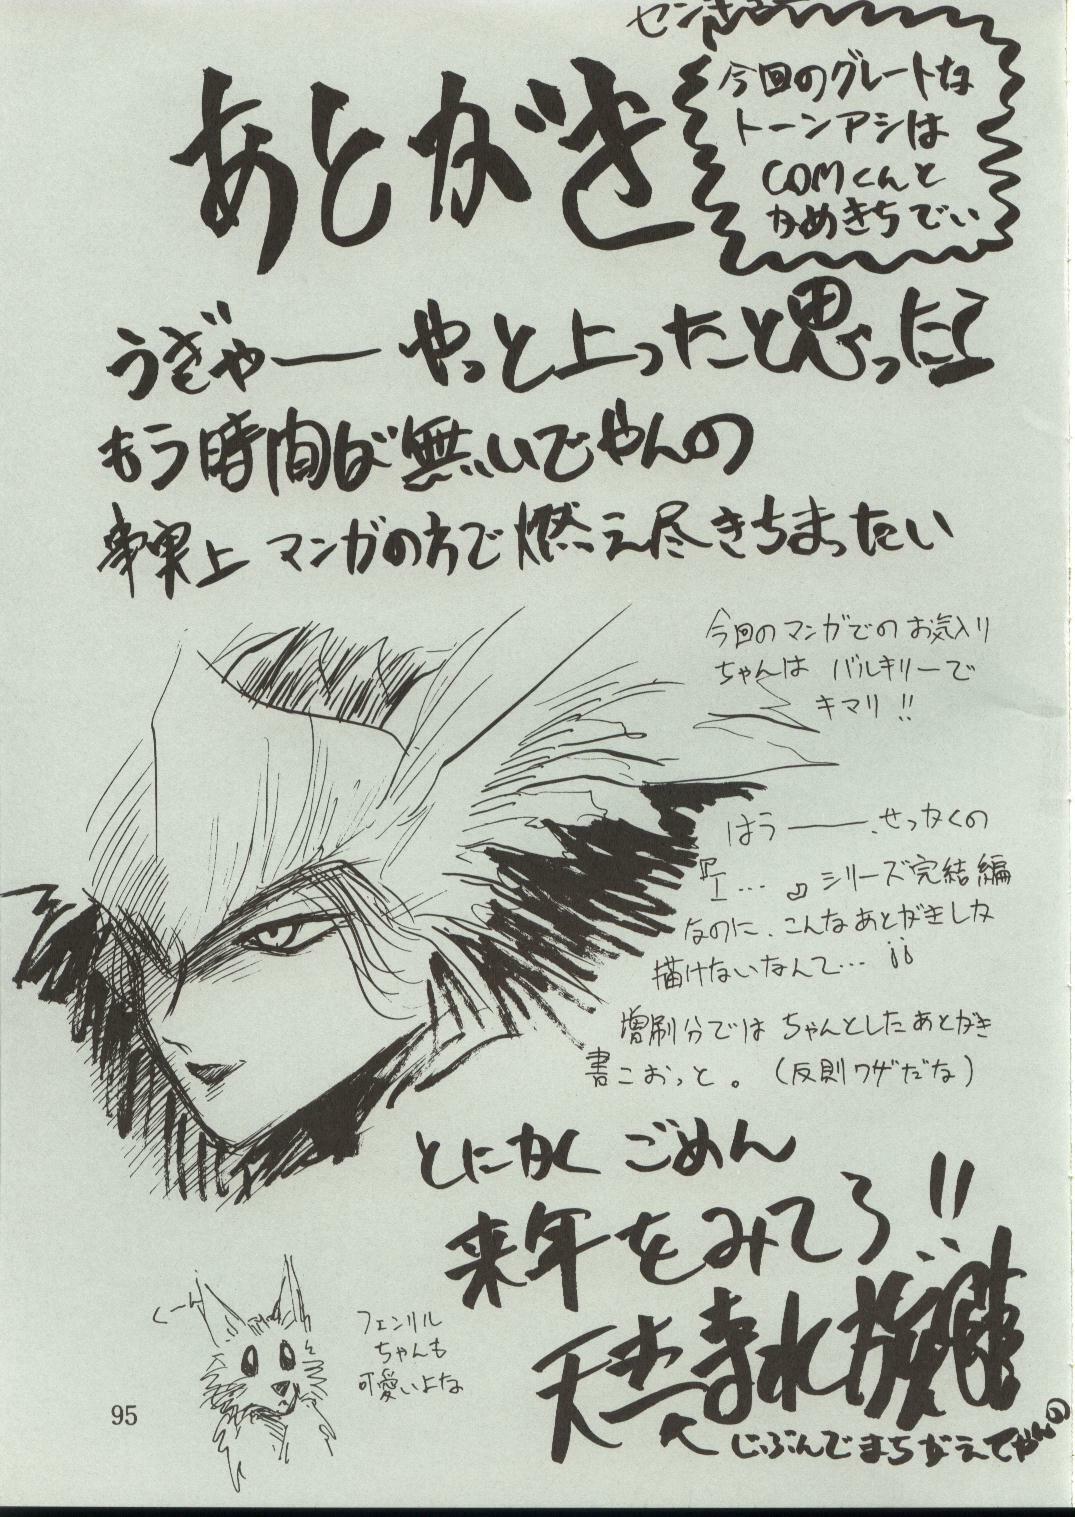 あとがき
今回のグレートな
トーンアシは
COMくんと
かめきちでい
うぎゃー やっと上ったと思ったら
もう時間が無いでやんの
事実上 マンガの方で燃え尽きちまったい
今回のマンガでのお気入り
ちゃんは バルキリーで
キマリ!!
はうー、せっかくの
『I…』シリーズ完結編
なのに、こんなあとがきしか
描けないなんて…
増刷分では ちゃんとしたあとがき
書こおっと。(反則ワザだな)
とにかく ごめん
来年をみてろ!!
じぶんでまちがえてやんの
くーん
フェンリル
ちゃんも
可愛いよな
95